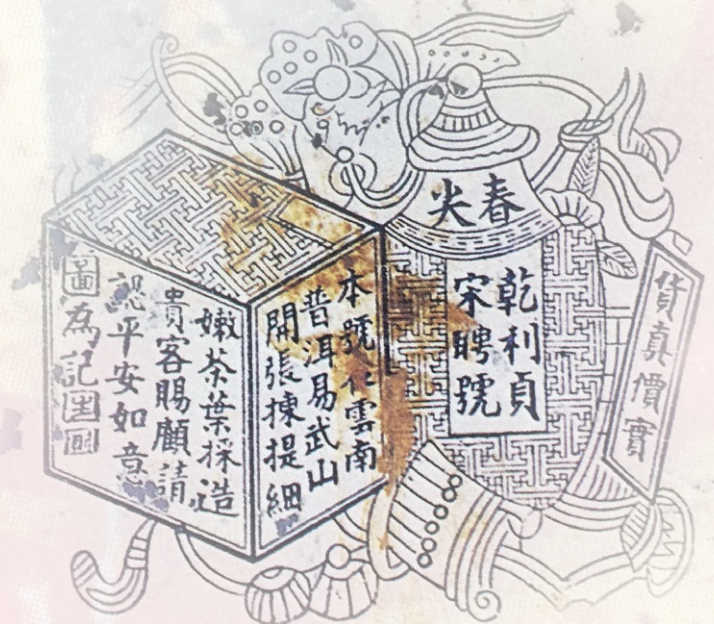 春尖
乾利貞
宋聘號
貨真價實
本號在雲南
普洱易武山
開張揀提細
嫩茶葉採造
貴客賜顧請
認平安如意
圖為記